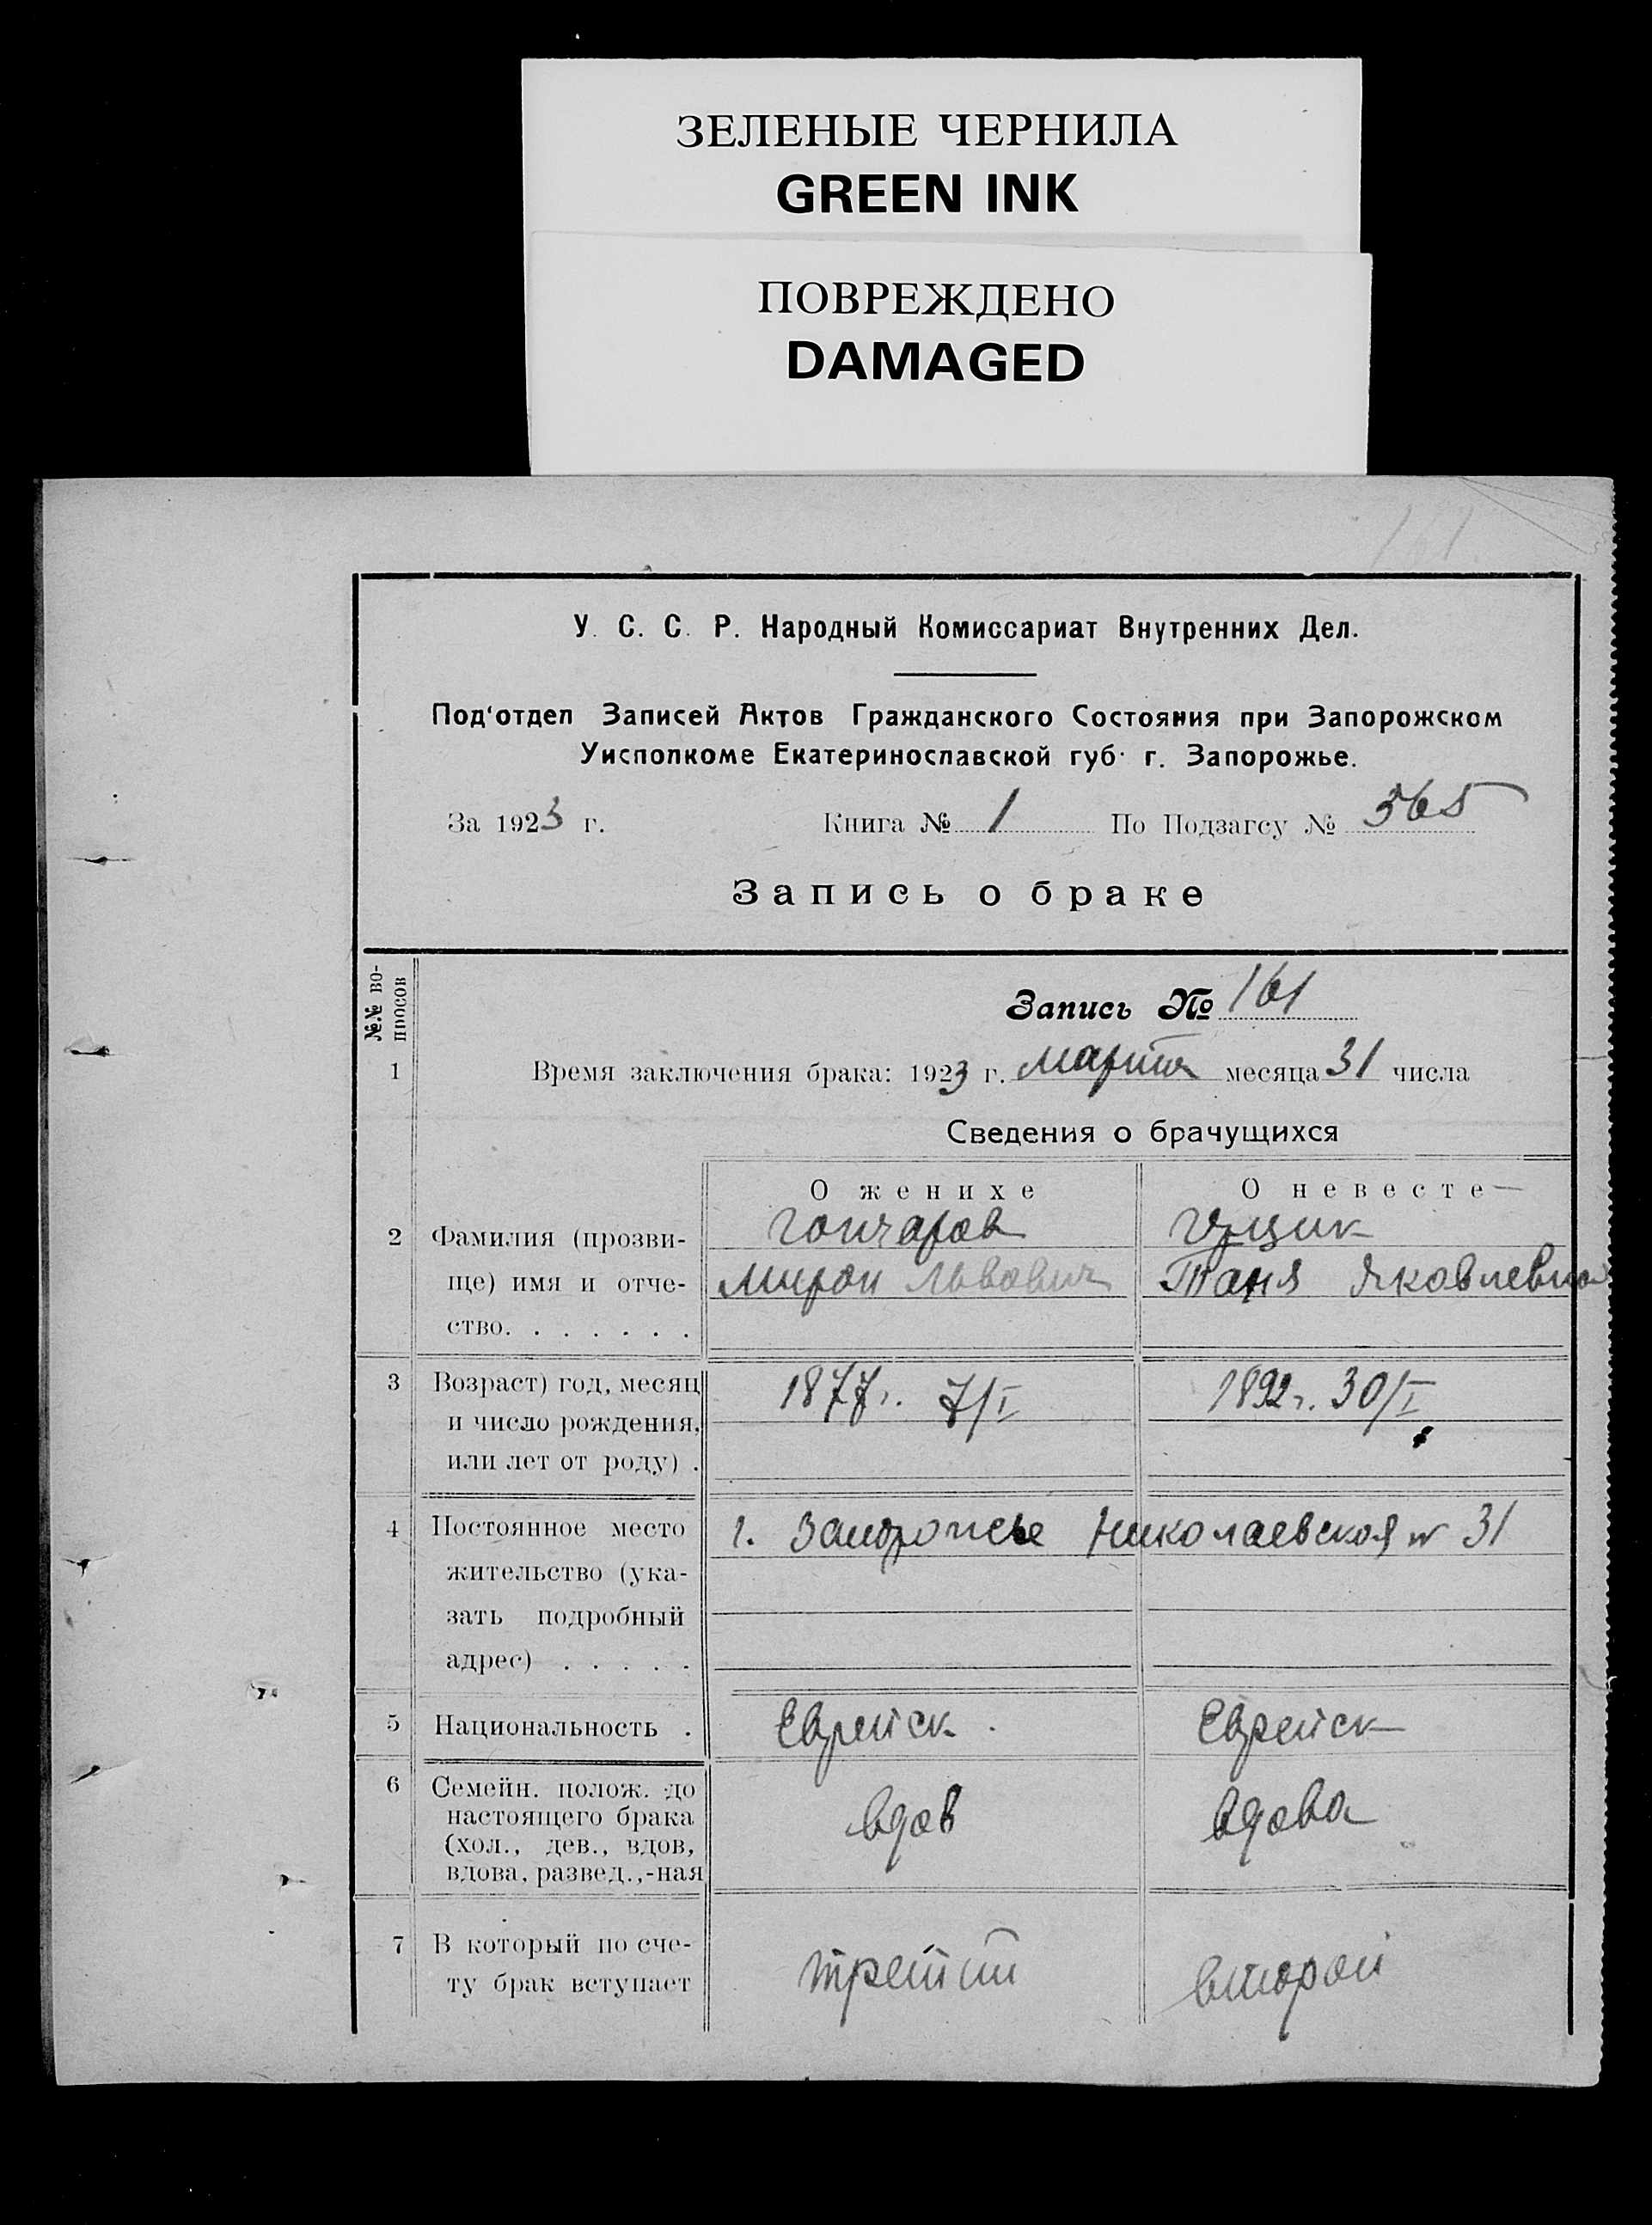 ЗЕЛЕНЫЕ ЧЕРНИЛА
GREEN INK
ПОВРЕЖДЕНО
DAMAGED
161
У. С. С. Р. Народный Комиссариат Внутренних Дел.
Под'отдел Записей Актов Гражданского Состояния при Запорожском
Уисполкоме Екатеринославской губ. г. Запорожье.
За 1923 г. Книга № 1 По Подзагсу № 565
Запись о браке
№№ во-
просов
Запись № 161
1 Время заключения брака: 1923 г. марта месяца 31 числа
Сведения о брачущихся
О женихе О невесте
2 Фамилия (прозви- Гончаров
ще) имя и отче- Мирон Львович Таня Яковлевна
ство. . . . . . .
3 Возраст) год, месяц 1877 г. 7/I 1892 г. 30/I
и число рождения,
или лет от роду) .
4 Постоянное место г. Запорожье Николаевская № 31
жительство (ука-
зать подробный
адрес) . . . . .
5 Национальность . Еврейск. Еврейск
6 Семейн. полож. до
настоящего брака
(хол., дев., вдов, вдов вдова
вдова, развед.,-ная
7 В который по сче-
ту брак вступает третий второй